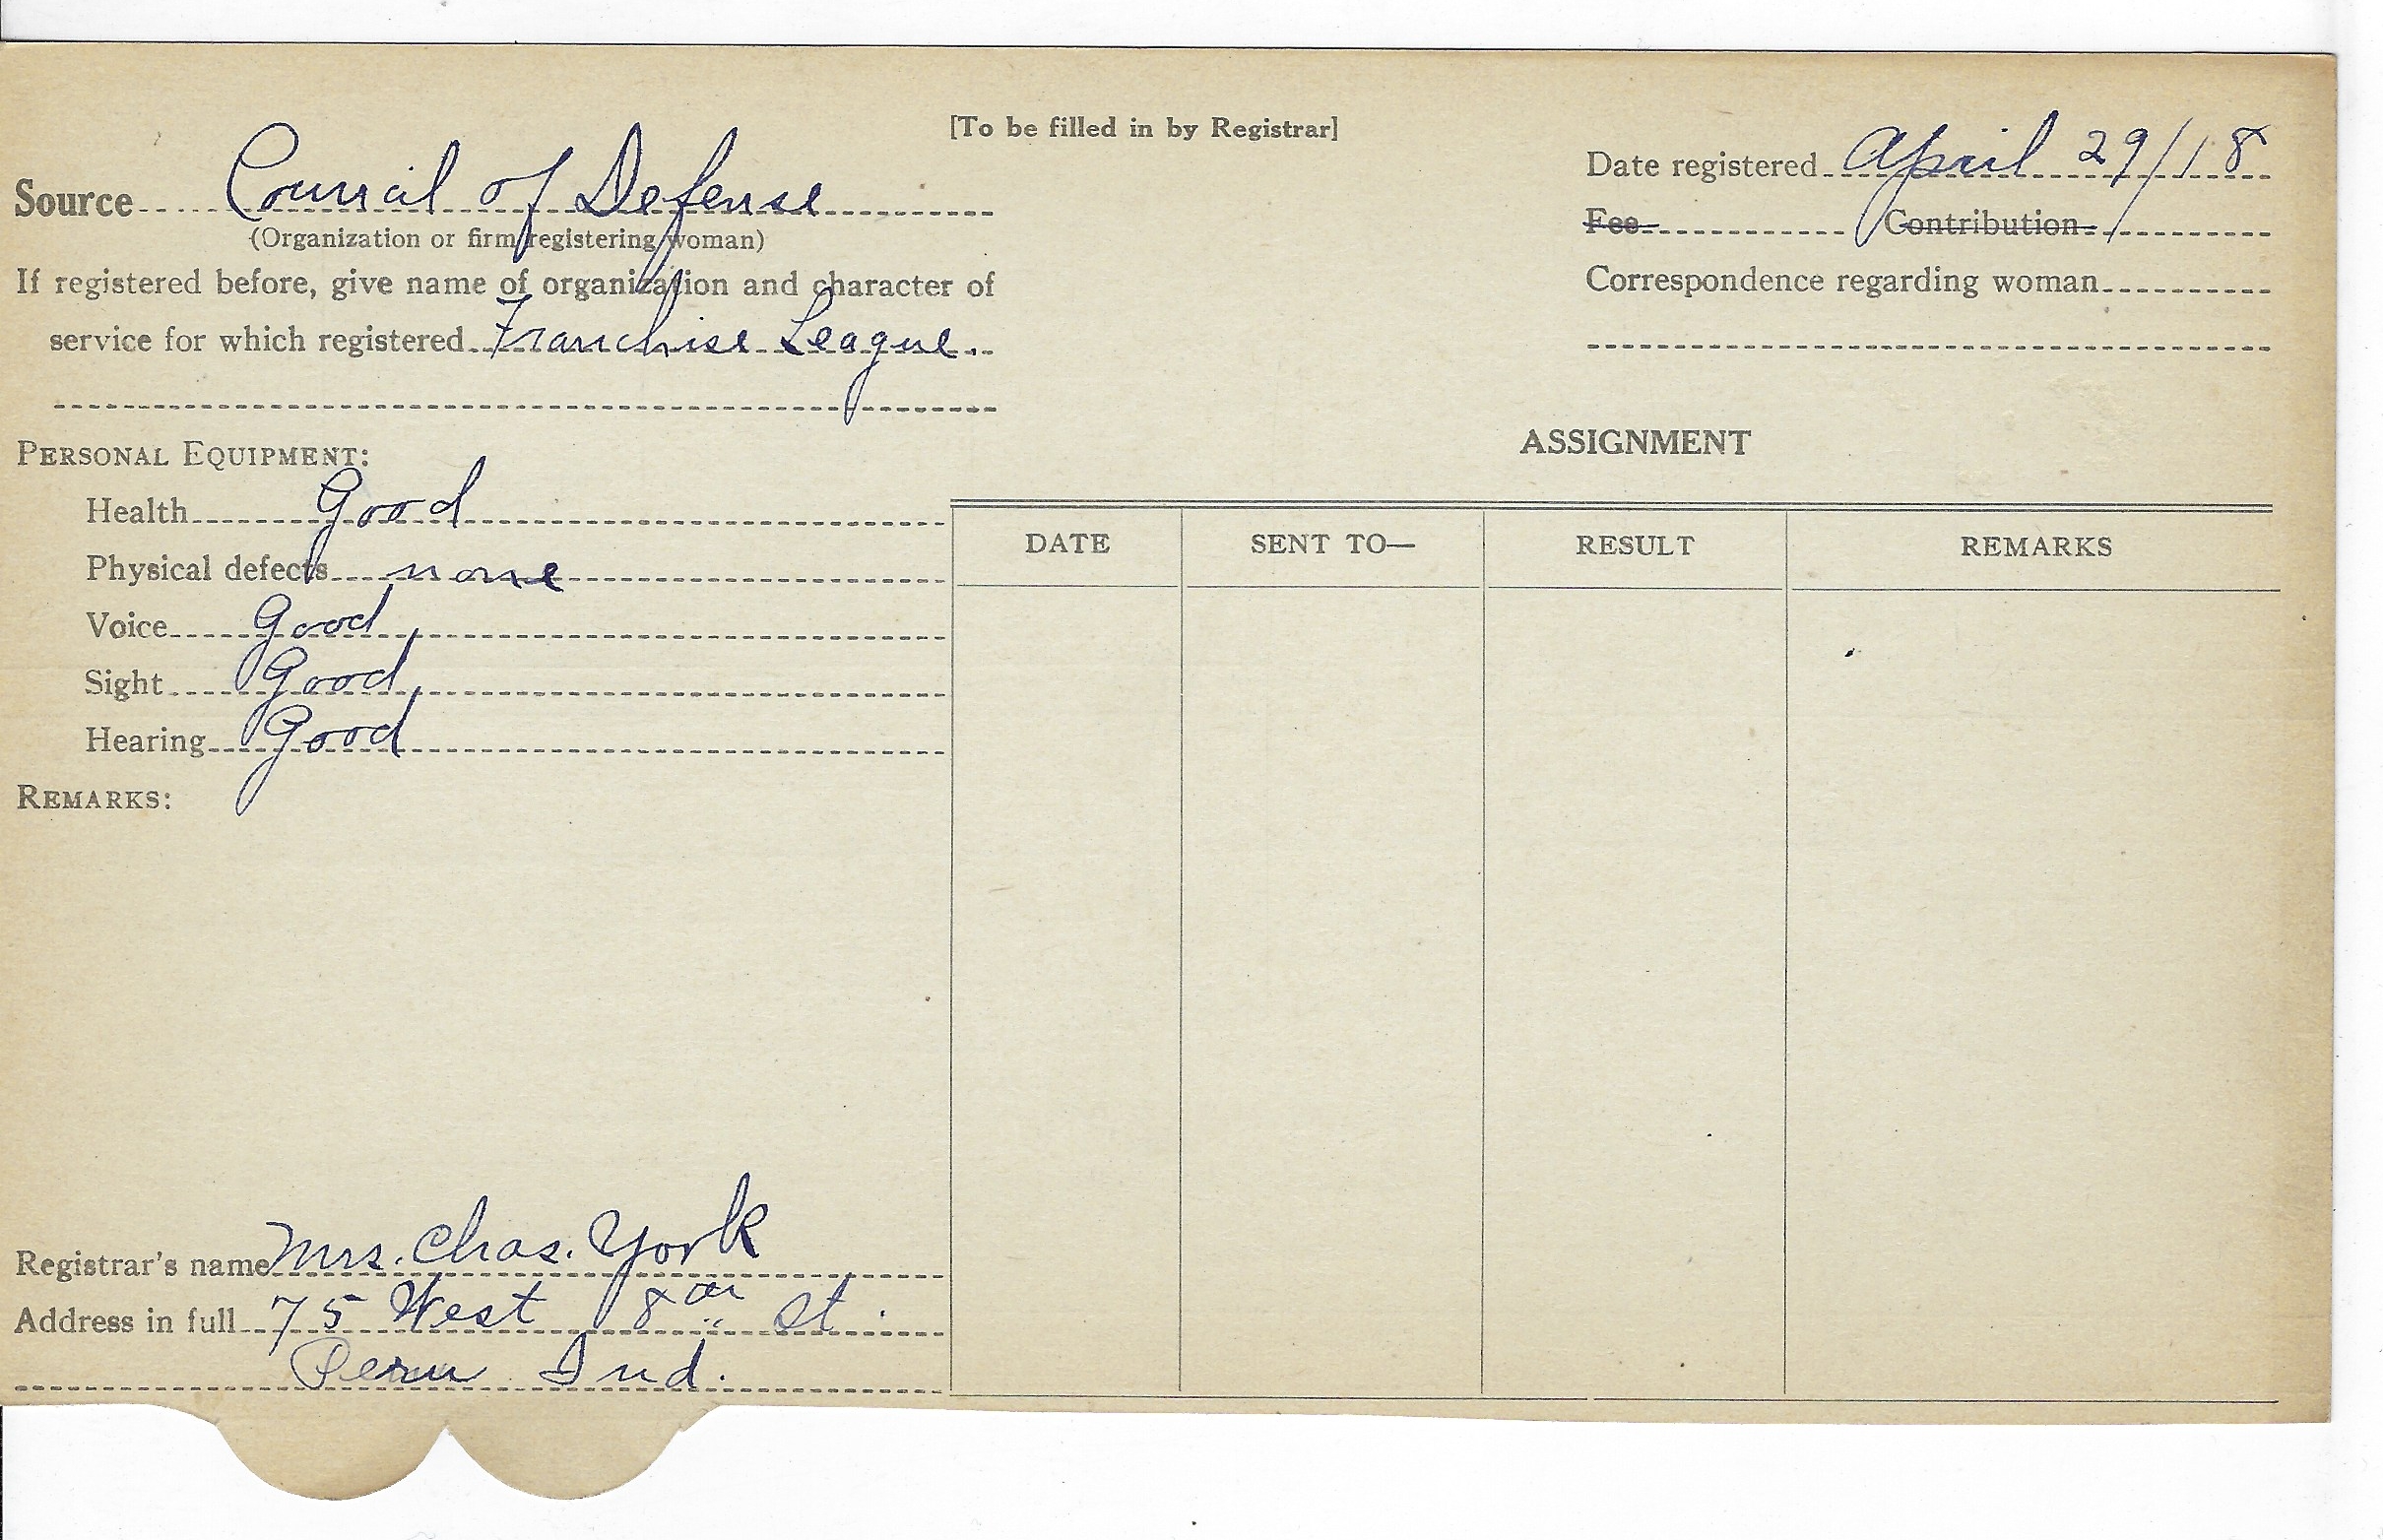 [To be filled in by Registrar]
Source Council of Defense
(Organization or firm registering woman)
If registered before, give name of organization and character of
service for which registered Franchise League.
PERSONAL EQUIPMENT:
Health Good
Physical defects none
Voice Good
Sight Good
Hearing Good
REMARKS:
Registrar's name Mrs. Chas. York
Address in full 75 West 8th St.
Peru Ind.
Date registered April 29/18
Fee Contribution
Correspondence regarding woman
ASSIGNMENT
DATE SENT TO— RESULT REMARKS